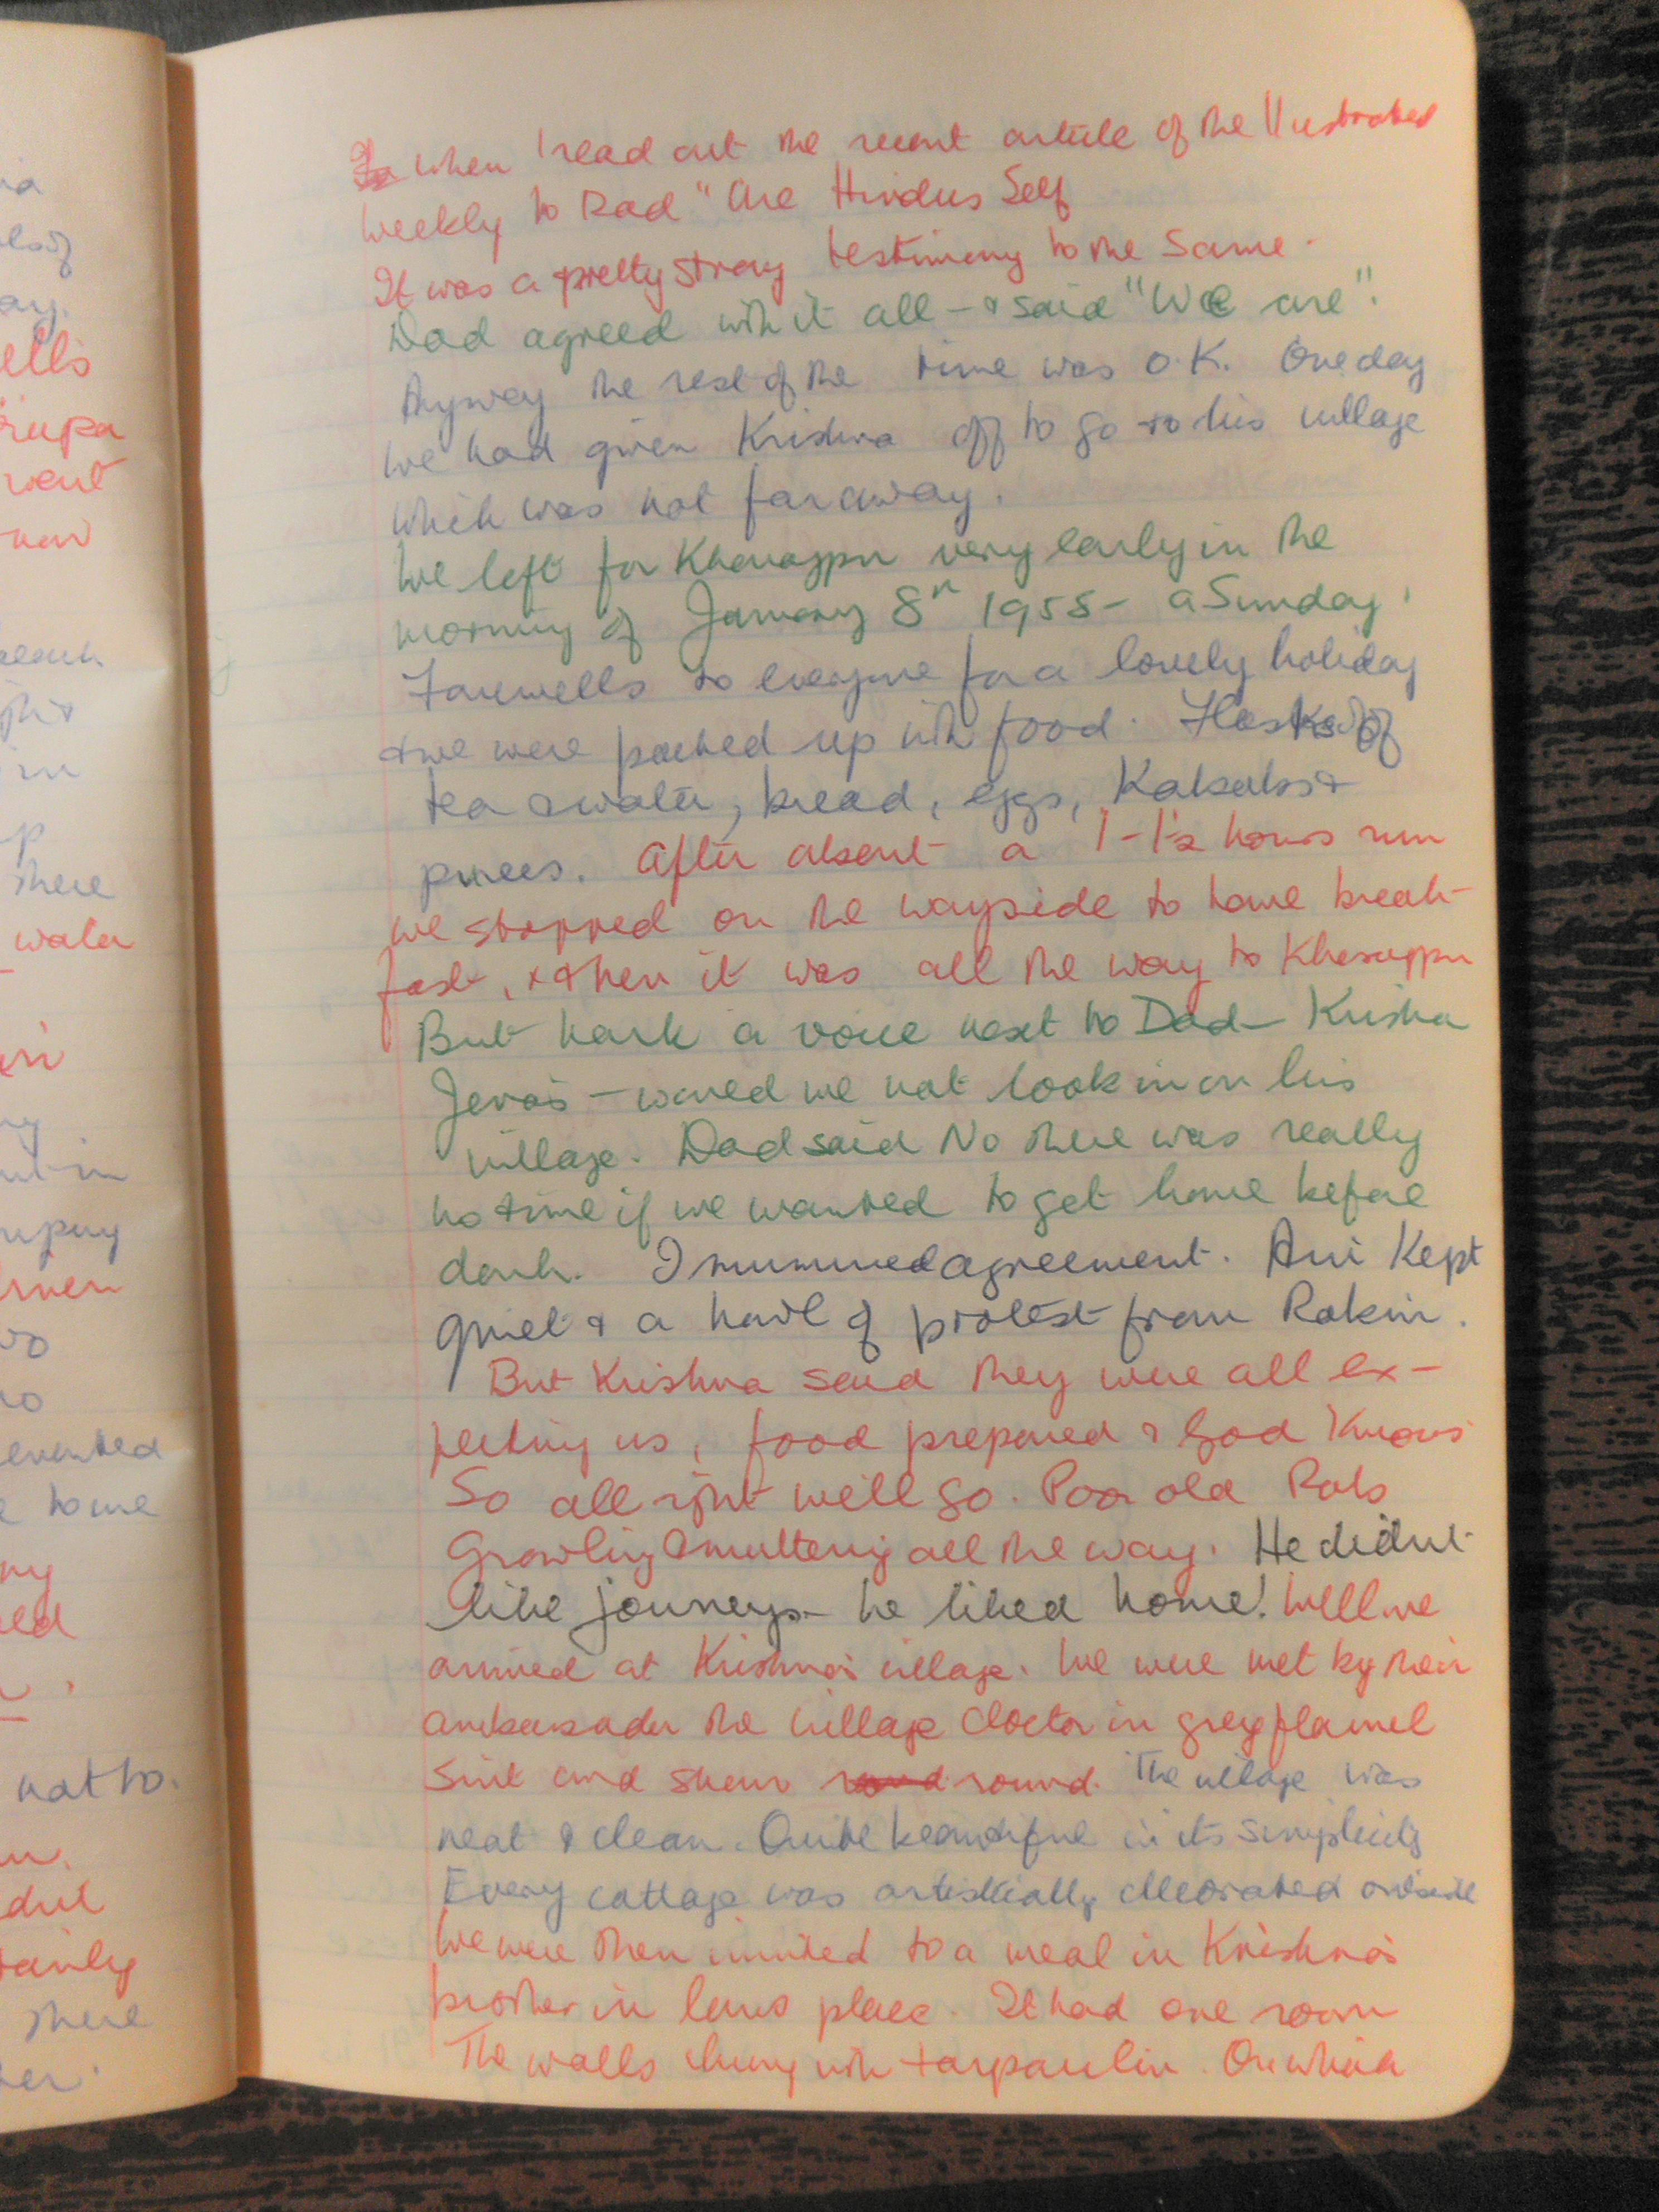 When I read out the recent article of the Illustrated
Weekly to Dad "Are Hindus Self
It was a pretty strong testimony to the same.
Dad agreed with it all - & said "We are".
Anyway the rest of the time was O.K. One day
we had given Krishna off to go to his village
which was not far away.
We left for Kharagpur very early in the
morning of January 8th 1955 - a Sunday.
Farewells to everyone for a lovely holiday
& we were packed up with food. Flasks of
tea & water, bread, eggs, Kababs &
purees. After about a 1-1½ hours run
we stopped on the wayside to have break-
fast, & then it was all the way to Kharagpur
But hark a voice next to Dad - Krishna
Jena's - would we not look in on his
village. Dad said No there was really
no time if we wanted to get home before
dark. I murmured agreement. Avi Kept
quiet & a howl of protest from Rakin.
But Krishna said they were all ex-
pecting us, food prepared & God Knows
So all right we'll go. Poor old Rob
Growling & muttering all the way. He didn't
like journeys - he liked home! Well we
arrived at Krishna's village. We were met by their
ambassador the village doctor in grey flannel
suit and shown round. The village was
neat & clean. Quite beautiful in its simplicity
Every cottage was artistically decorated outside
We were then invited to a meal in Krishna's
brother in laws place. It had one room
The walls hung with tarpaulin. On which